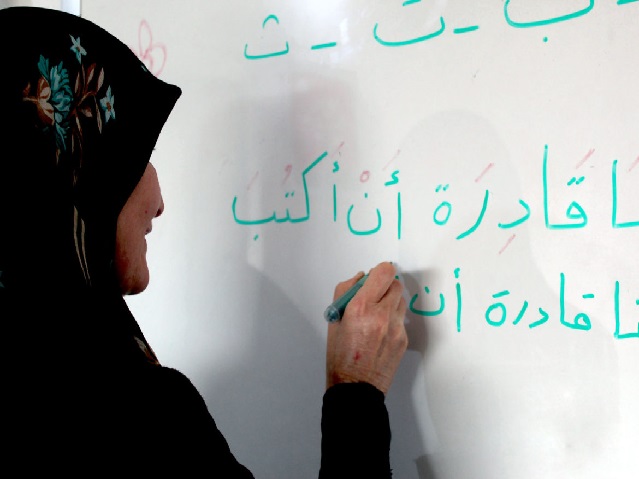 ب - ت - ث
نَا قَادِرَة أَنْ أَكتُبَ
نا قادرة أن